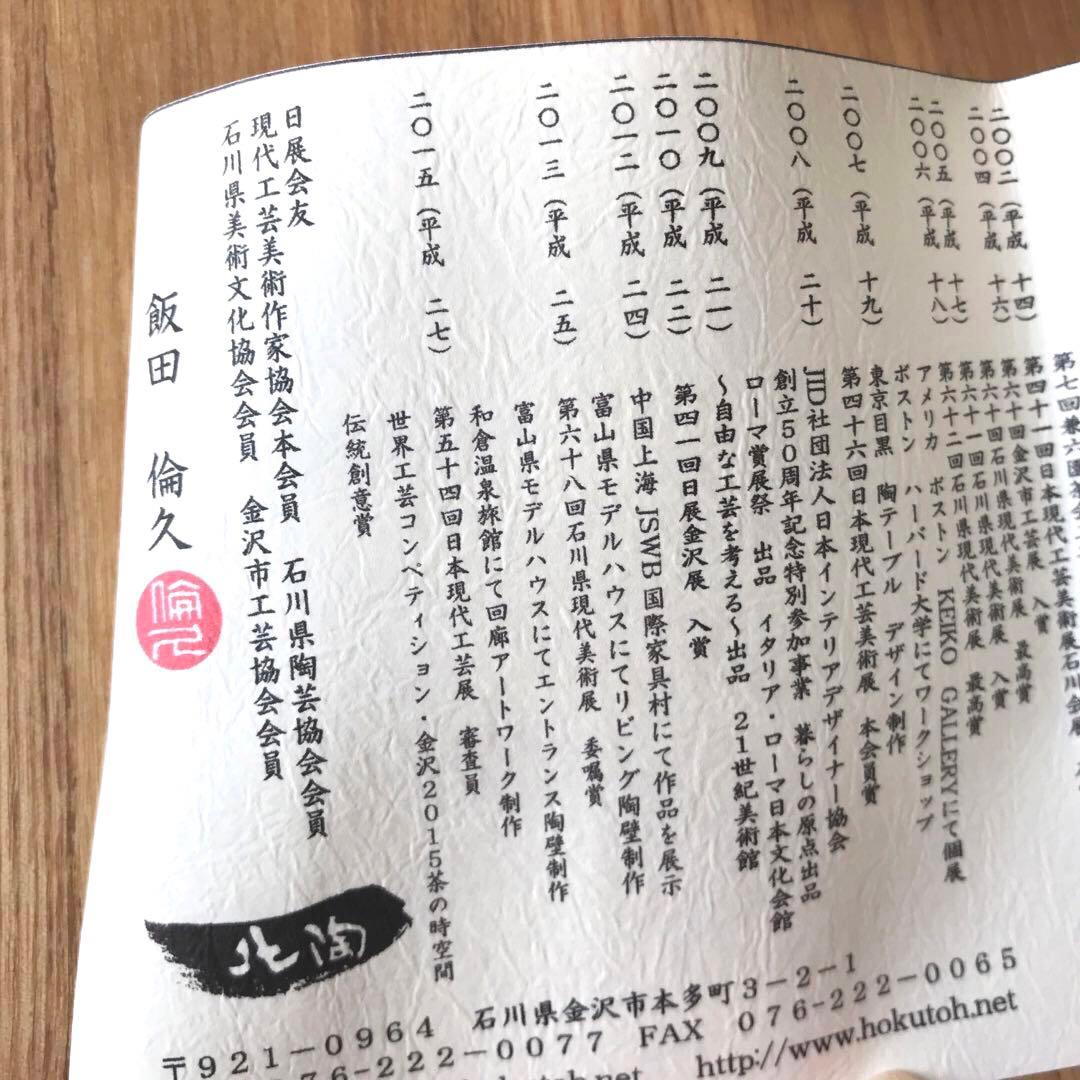 第七四
二〇〇二（平成 十四）
第四十一回日本現代工芸美術展石川会展
入賞
二〇〇四 （平成 十六）
第六十回金沢市工芸展 最高賞
第六十回石川県現代美術展 入賞
二〇〇五 （平成 十七）
第六十一回石川県現代美術展 最高賞
二〇〇六 （平成 十八）
第六十二回石川県現代美術展
アメリカ ボストン KEIKO GALLERYにて個展
ボストン ハーバード大学にてワークショップ
東京目黒 陶テーブル デザイン制作
二〇〇七 （平成 十九）
第四十六回日本現代工芸美術展 本会員賞
二〇〇八 （平成 二十）
JID社団法人日本インテリアデザイナー協会
創立50周年記念特別参加事業 暮らしの原点出品
ローマ賞展祭 出品 イタリア・ローマ日本文化会館
〜自由な工芸を考える〜出品 21世紀美術館
二〇〇九（平成 二一）
第四一回日展金沢展 入賞
二〇一〇（平成 二二）
中国上海 JSWB国際家具村にて作品を展示
二〇一二（平成 二四）
富山県モデルハウスにてリビング陶壁制作
第六十八回石川県現代美術展 委嘱賞
二〇一三（平成 二五）
富山県モデルハウスにてエントランス陶壁制作
和倉温泉旅館にて回廊アートワーク制作
第五十四回日本現代工芸展 審査員
二〇一五（平成 二七）
世界工芸コンペティション・金沢2015茶の時空間
伝統創意賞
日展会友
現代工芸美術作家協会本会員 石川県陶芸協会会員
石川県美術文化協会会員 金沢市工芸協会会員
飯田 倫久
北陶
〒921-0964 石川県金沢市本多町3-2-1
76-222-0077 FAX 076-222-0065
http://www.hokutoh.net